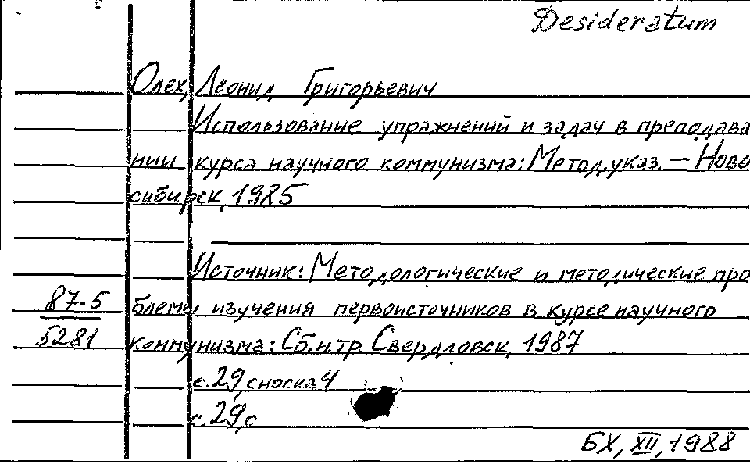 Desideratum
Олех, Леонид Григорьевич
Использование упражнений и задач в преподава
нии курса научного коммунизма: Метод. указ. — Ново
сибирск, 1985
Источник: Методологические и методические про
87-5 блемы изучения первоисточников в курсе научного
5281 коммунизма: Сб. н. тр. Свердловск, 1987
с. 29, сноска 4
с. 29, с
БХ, XII, 1988